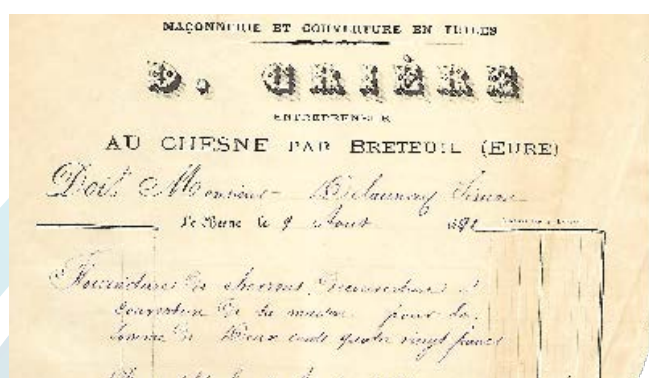 MAÇONNERIE ET COUVERTURE EN TUILES
D. GRIÈRE
ENTREPRENEUR
AU CHESNE PAR BRETEUIL (EURE)
Doit Monsieur Delaunay
le 9 Août 189
Fournitures de chevrons Découverture et
Couverture de sa maison pour la
Somme de Deux cents quatre vingt francs